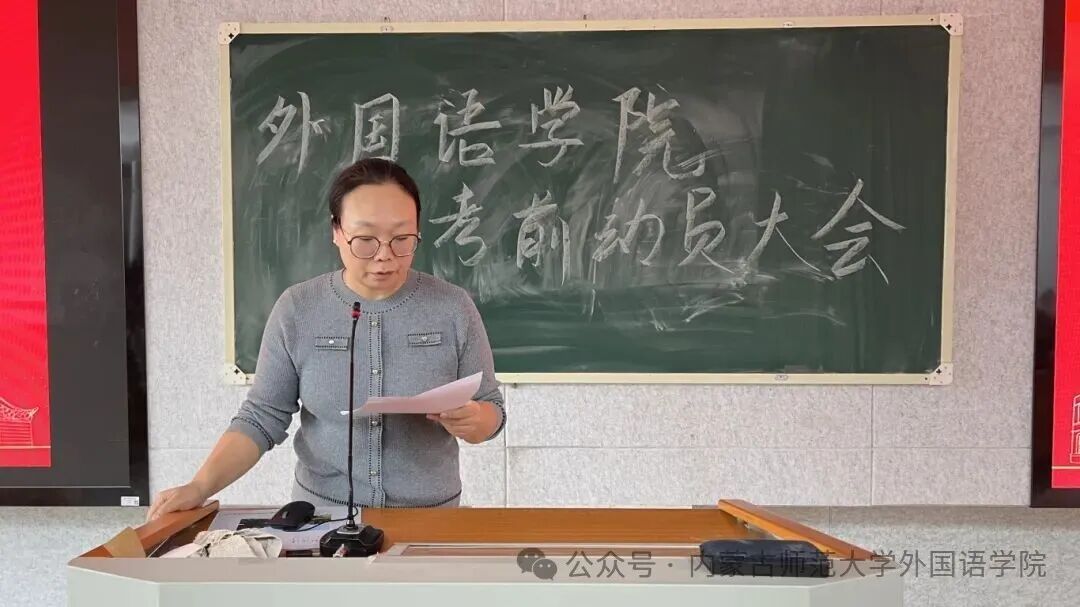 外国语学院
考前动员大会
公众号·内蒙古师范大学外国语学院